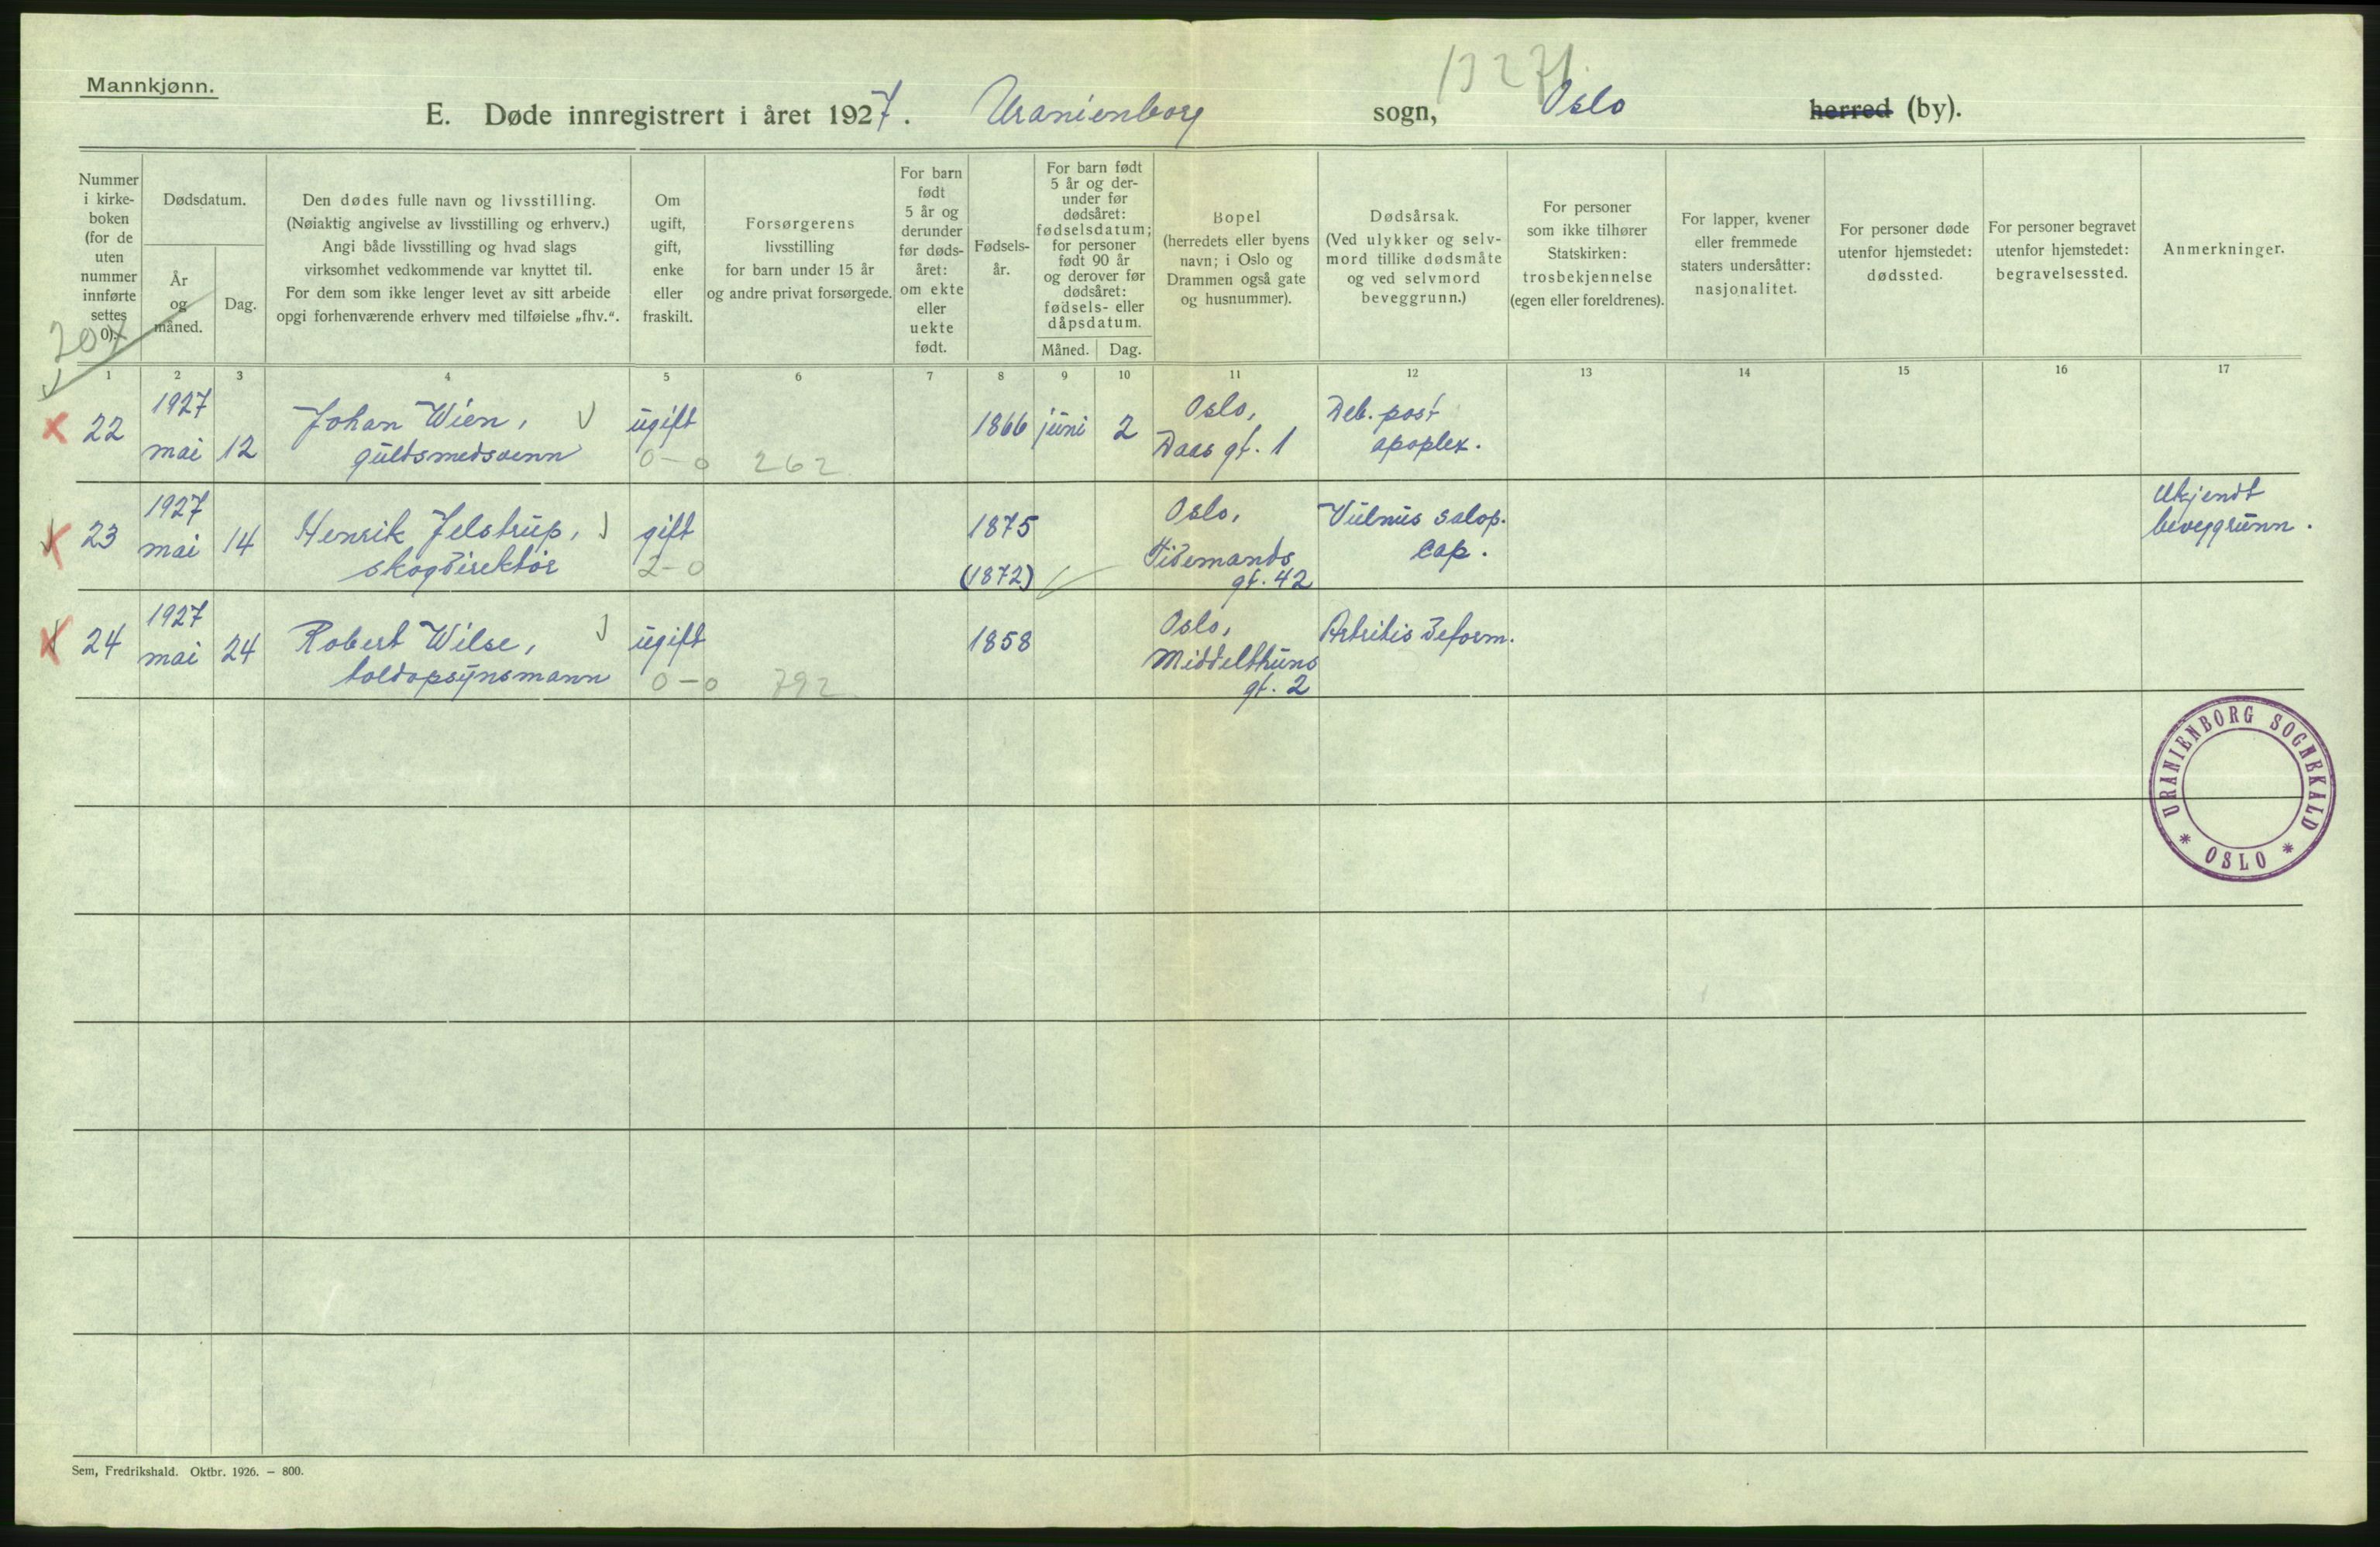 Mannkjønn.
1327
E. Døde innregistrert i året 1927. Uranienborg sogn, Oslo herred (by).
Nummer i kirke-boken (for de uten nummer innførte settes 0).
Dødsdatum.
År og måned.
Dag.
Den dødes fulle navn og livsstilling.
(Nøiaktig angivelse av livsstilling og erhverv.)
Angi både livsstilling og hvad slags
virksomhet vedkommende var knyttet til.
For dem som ikke lenger levet av sitt arbeide
opgi forhenværende erhverv med tilføielse „fhv.“.
Om
ugift,
gift,
enke
eller
fraskilt.
Forsørgerens
livsstilling
for barn under 15 år
og andre privat forsørgede.
For barn
født
5 år og
derunder
før døds-
året:
om ekte
eller
uekte
født.
Fødsels-
år.
For barn født
5 år og der-
under før
dødsåret:
fødselsdatum;
for personer
født 90 år
og derover før
dødsåret:
fødsels- eller
dåpsdatum.
Måned. Dag.
Bopel
(herredets eller byens
navn; i Oslo og
Drammen også gate
og husnummer).
Dødsårsak.
(Ved ulykker og selv-
mord tillike dødsmåte
og ved selvmord
beveggrunn.)
For personer
som ikke tilhører
Statskirken:
trosbekjennelse
(egen eller foreldrenes).
For lapper, kvener
eller fremmede
staters undersåtter:
nasjonalitet.
For personer døde
utenfor hjemstedet:
dødssted.
For personer begravet
utenfor hjemstedet:
begravelsessted.
Anmerkninger.
207
1 2 3 4 5 6 7 8 9 10 11 12 13 14 15 16 17
22 1927 mai 12 Johan Wien, guldsmedsvenn ugift 0-0 262 1866 juni 2 Oslo, Daas gt. 1 Deb. post apoplex.
23 1927 mai 14 Henrik Jelstrup, skogdirektør gift 2-0 1875 (1872) Oslo, Tidemands gt. 42 Vulnus sclop. cap. Ukjendt beveggrunn.
24 1927 mai 24 Robert Wilse, toldopsynsmann ugift 0-0 792 1858 Oslo, Middelthuns gt. 2 Artritis deform.
URANIENBORG SOGNEKALD
* OSLO *
Sem, Fredrikshald. Oktbr. 1926. – 800.